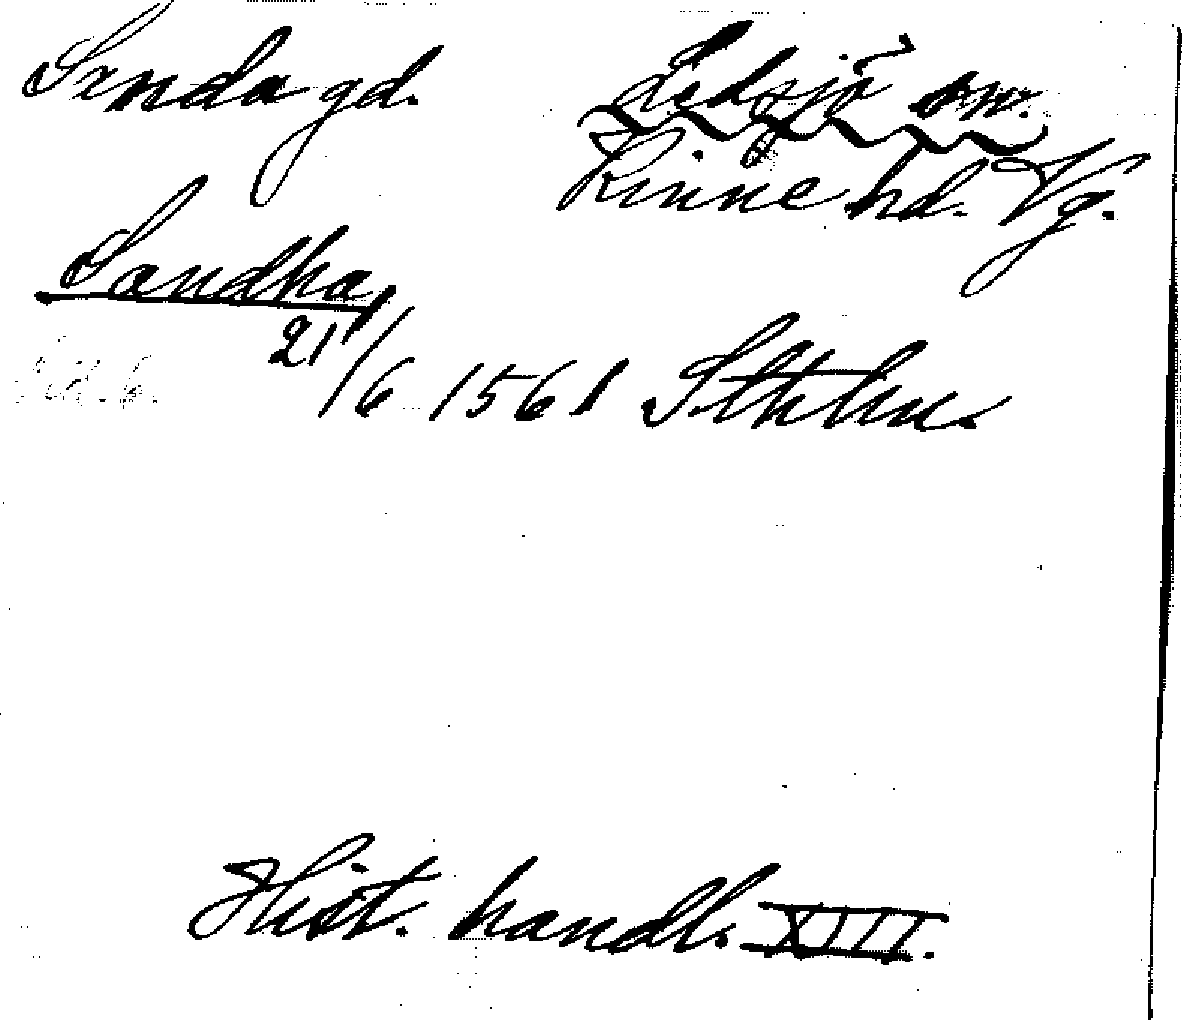 Sanda gd.
Ledsjö sn.
Kinne hd. Vg.
Sandha
21/6 1561 Sthlm.
Hist. handl. XIII.